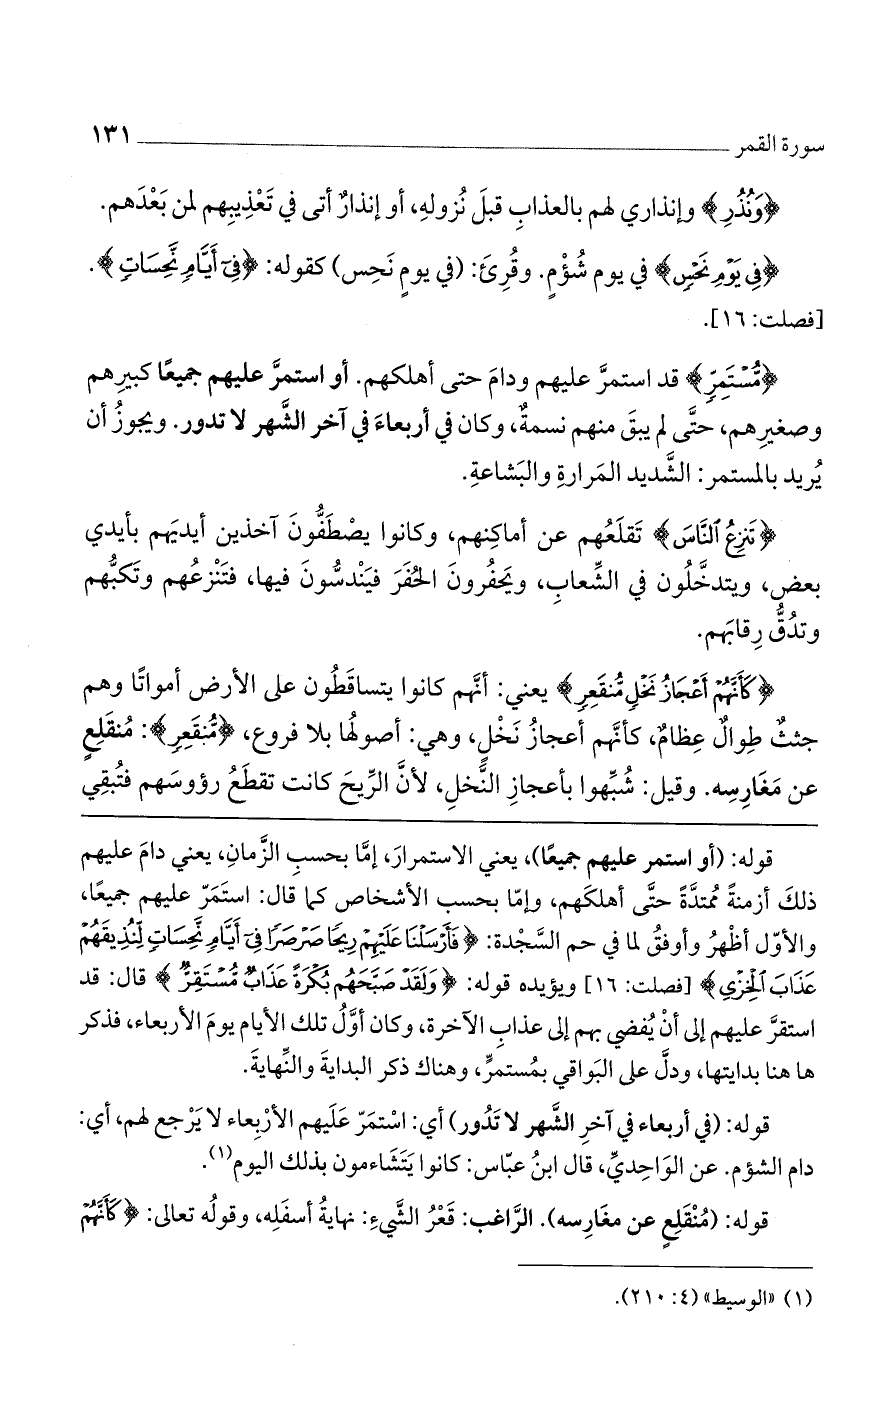 سورة القمر ١٣١
﴿وَنُذُرِ﴾ وإنذاري لهم بالعذابِ قبلَ نُزولهِ، أو إنذارٌ أتى في تَعْذِيبِهم لمن بَعْدَهم.
﴿فِي يَوْمِ نَحْسٍ﴾ في يوم شُؤْمٍ. وقُرِئَ: (في يومٍ نَحِس) كقوله: ﴿فِيٓ أَيَّامٍ نَّحِسَاتٍ﴾.
[فصلت: ١٦].
﴿مُّسْتَمِرٍّ﴾ قد استمرَّ عليهم ودامَ حتى أهلكهم. أو استمرَّ عليهم جميعًا كبيرِهم
وصغيرِهم، حتَّى لم يبقَ منهم نسمةٌ، وكان في أربعاءَ في آخر الشَّهر لا تدور. ويجوزُ أن
يُريد بالمستمر: الشَّديد المَرارةِ والبَشاعةِ.
﴿تَنزِعُ ٱلنَّاسَ﴾ تَقلَعُهم عن أماكِنهم، وكانوا يصْطَفُّونَ آخذين أيديَهم بأيدي
بعض، ويتدخَّلُون في الشِّعابِ، ويَحفُرونَ الحُفَرَ فيَندسُّونَ فيها، فتَنْزعُهم وتَكبُّهم
وتدُقُّ رِقابَهم.
﴿كَأَنَّهُمْ أَعْجَازُ نَخْلٍ مُّنقَعِرٍ﴾ يعني: أنَّهم كانوا يتساقَطُون على الأرض أمواتًا وهم
جثثٌ طِوالٌ عِظامٌ، كأنَّهم أعجازُ نَخْلٍ، وهي: أصولُها بلا فروع، ﴿مُّنقَعِرٍ﴾: مُنقَلِعٍ
عن مَغَارِسِه. وقيل: شُبِّهوا بأعجازِ النَّخلِ، لأنَّ الرِّيحَ كانت تقطَعُ رؤوسَهم فتُبقِي
قوله: (أو استمر عليهم جميعًا)، يعني الاستمرارَ، إمَّا بحسبِ الزَّمانِ، يعني دامَ عليهم
ذلكَ أزمنةً مُمتدَّةً حتَّى أهلكَهم، وإمّا بحسب الأشخاص كما قال: استَمَرّ عليهم جميعًا،
والأوّل أظْهرُ وأوفقُ لما في حم السَّجْدة: ﴿فَأَرْسَلْنَا عَلَيْهِمْ رِيحًا صَرْصَرًا فِيٓ أَيَّامٍ نَّحِسَاتٍ لِّنُذِيقَهُمْ
عَذَابَ ٱلْخِزْيِ﴾ [فصلت: ١٦] ويؤيده قوله: ﴿وَلَقَدْ صَبَّحَهُم بُكْرَةً عَذَابٌ مُّسْتَقِرٌّ﴾ قال: قد
استقرَّ عليهم إلى أنْ يُفضي بهم إلى عذابِ الآخرة، وكان أوَّلُ تلك الأيام يومَ الأربعاء، فذكر
ها هنا بدايتها، ودلَّ على البَواقي بمُستمرٍّ، وهناك ذكر البدايةَ والنِّهايةَ.
قوله: (في أربعاء في آخرِ الشَّهر لا تَدُور) أي: اسْتمَرّ عَلَيهم الأرْبِعاء لا يَرْجع لهم، أي:
دام الشؤم. عن الوَاحِديِّ، قال ابنُ عبّاس: كانوا يَتَشَاءمون بذلك اليوم(١).
قوله: (مُنْقَلِعٍ عن مغارِسه). الرَّاغب: قَعْرُ الشَّيءِ: نهايةُ أسفَلِه، وقولُه تعالى: ﴿كَأَنَّهُمْ
(١) «الوسيط» (٤: ٢١٠).